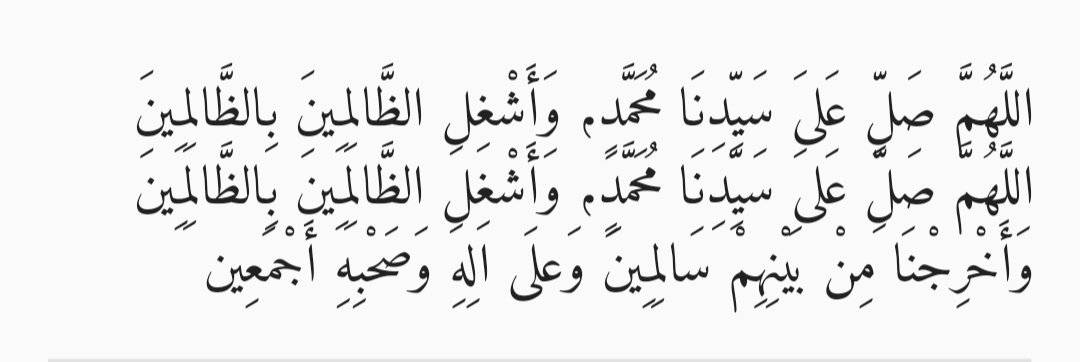 اللَّهُمَّ صَلِّ عَلَى سَيِّدِنَا مُحَمَّدٍ، وَأَشْغِلِ الظَّالِمِينَ بِالظَّالِمِينَ
اللَّهُمَّ صَلِّ عَلَى سَيِّدِنَا مُحَمَّدٍ، وَأَشْغِلِ الظَّالِمِينَ بِالظَّالِمِينَ
وَأَخْرِجْنَا مِنْ بَيْنِهِمْ سَالِمِينَ وَعلَى الِهِ وَصَحْبِهِ أَجْمَعِين